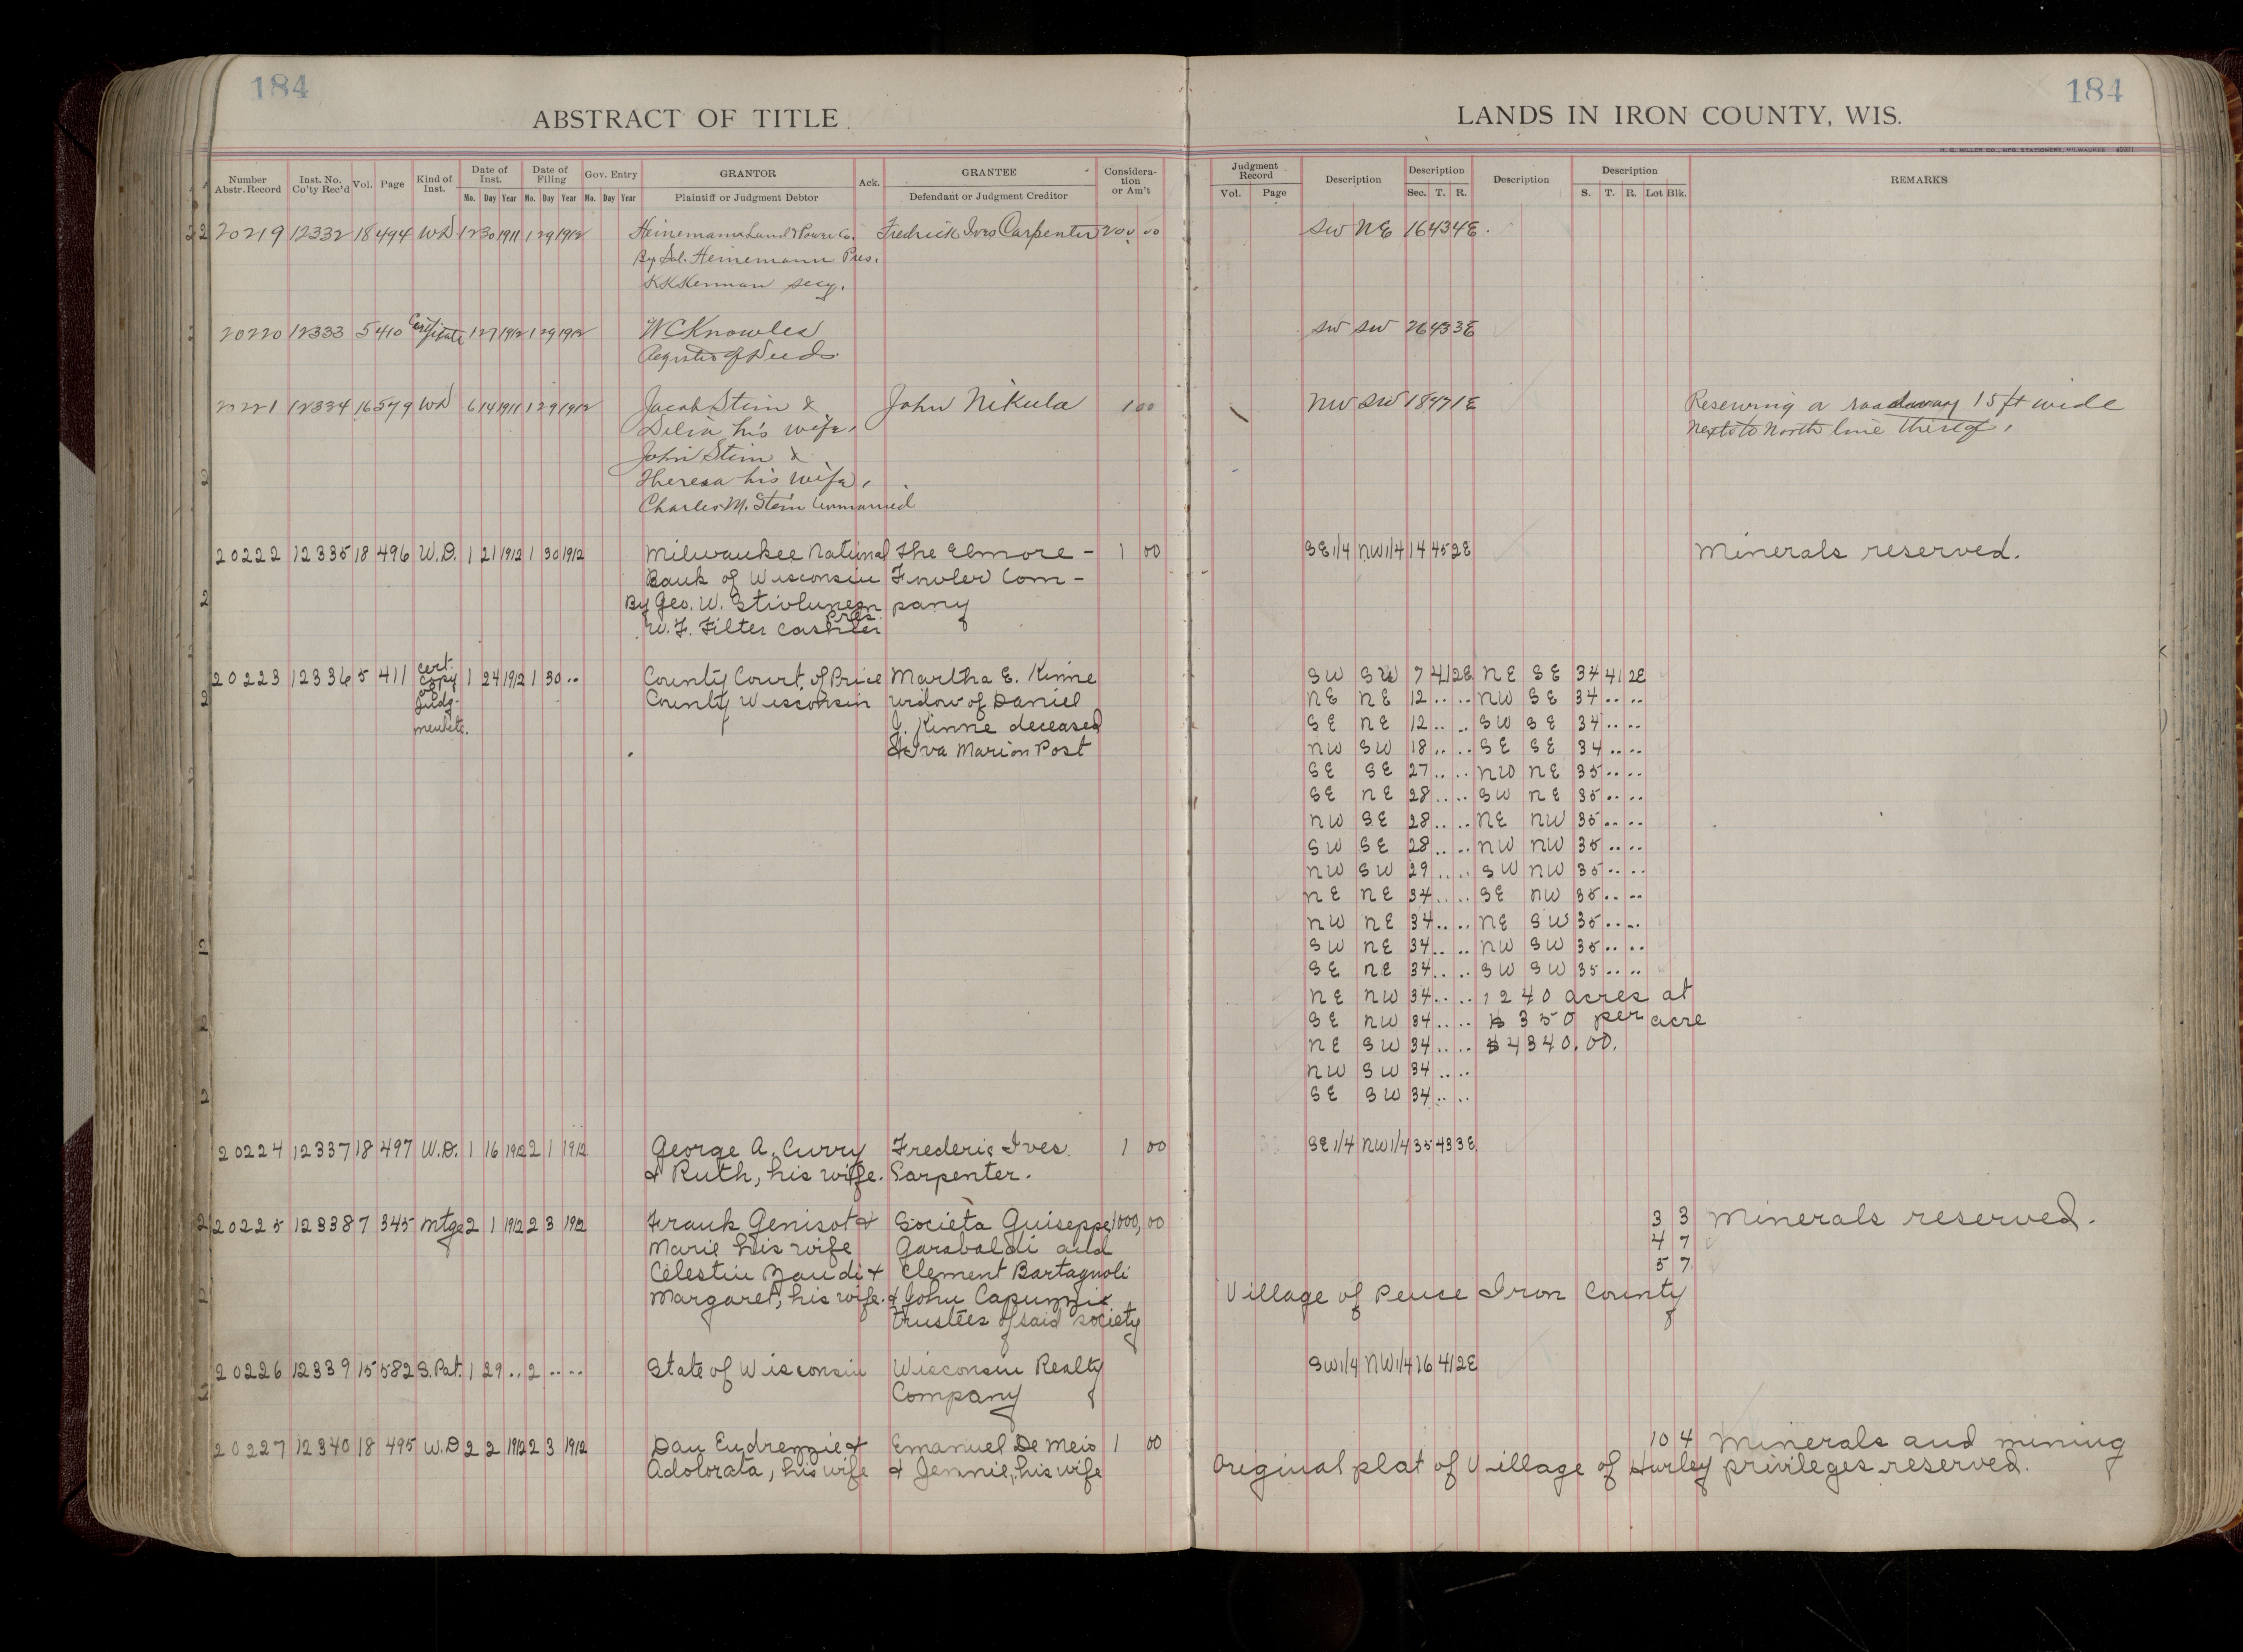 184
184
ABSTRACT OF TITLE
LANDS IN IRON COUNTY, WIS.
H. G. MILLER CO., MFG. STATIONERS, MILWAUKEE
Number Abstr. Record Inst. No. Co'ty Rec'd Vol. Page Kind of Inst. Date of Inst. Mo. Day Year Date of Filing Mo. Day Year Gov. Entry Mo. Day Year GRANTOR Plaintiff or Judgment Debtor Ack. GRANTEE Defendant or Judgment Creditor Considera-tion or Am't
Judgment Record Vol. Page Description Description Sec. T. R. Description Description S. T. R. Lot Blk. REMARKS
20219 12332 18 494 WD 12 30 1911 1 29 1912 Heinemann Land & Power Co. Fredrick Ives Carpenter 200 00 SW NE 16 43 4E
By Sol. Heinemann Pres.
KKKennan secy.
20220 12333 5 410 Certificate 1 27 1912 1 29 1912 WCKnowles SW SW 26 43 3E
Register of Deeds
20221 12334 16 579 WD 6 14 1911 1 29 1912 Jacob Stein & John Nikula 1 00 NW SW 18 47 1E Reserving a roadway 15 ft wide
Delia his wife, Next to North line thereof,
John Stein &
Theresa his wife,
Charles M. Stein Unmarried
20222 12335 18 496 W.D. 1 21 1912 1 30 1912 Milwaukee National The Elmore - 1 00 SE1/4 NW1/4 14 45 2E Minerals reserved.
Bank of Wisconsin Fowler Com-
By Geo. W. Pres. pany
W. F. Filter Cashier
20223 12336 5 411 Cert. copy of Judg-ment etc. 1 24 1912 1 30 .. County Court of Price Martha E. Kinne SW SW 7 41 2E NE SE 34 41 2E
County Wisconsin widow of Daniel NE NE 12 .. .. NW SE 34 .. ..
J. Kinne deceased SE NE 12 .. .. SW SE 34 .. ..
& Iva Marion Post NW SW 18 .. .. SE SE 34 .. ..
SE SE 27 .. .. NW NE 35 .. ..
SE NE 28 .. .. SW NE 35 .. ..
NW SE 28 .. .. NE NW 35 .. ..
SW SE 28 .. .. NW NW 35 .. ..
NW SW 29 .. .. SW NW 35 .. ..
NE NE 34 .. .. SE NW 35 .. ..
NW NE 34 .. .. NE SW 35 .. ..
SW NE 34 .. .. NW SW 35 .. ..
SE NE 34 .. .. SW SW 35 .. ..
NE NW 34 .. .. 1240 acres at
SE NW 34 .. .. $ 350 per acre
NE SW 34 .. .. $4340.00.
NW SW 34 .. ..
SE SW 34 .. ..
20224 12337 18 497 W.D. 1 16 1912 2 1 1912 George A. Curry Frederic Ives 1 00 SE1/4 NW1/4 35 43 3E
& Ruth, his wife. Carpenter.
20225 12338 7 345 Mtge 2 1 1912 2 3 1912 Frank Genisot & Societa Guiseppe 1000,00 3 3 Minerals reserved.
Marie his wife Garabaldi and 4 7
Celestin Zandi & Clement Bartagnoli 5 7
Margaret, his wife. & John Capunzie Village of Pence Iron County
trustees of said society
20226 12339 15 582 S. Pat. 1 29 .. 2 .. .. State of Wisconsin Wisconsin Realty SW1/4 NW1/4 16 41 2E
Company
20227 12340 18 495 W.D 2 2 1912 2 3 1912 Dan Endrezzie & Emanuel De Meis 1 00 10 4 Minerals and mining
Adolorata, his wife & Jennie, his wife Original plat of Village of Hurley privileges reserved.